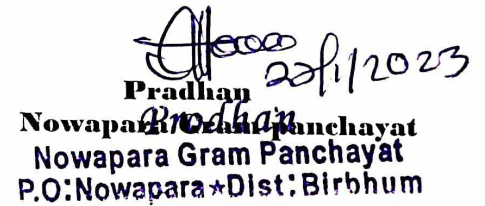 22/1/2023
Pradhan
Prodhan
Nowapara Gram panchayat
Nowapara Gram Panchayat
P.O:Nowapara★Dist:Birbhum